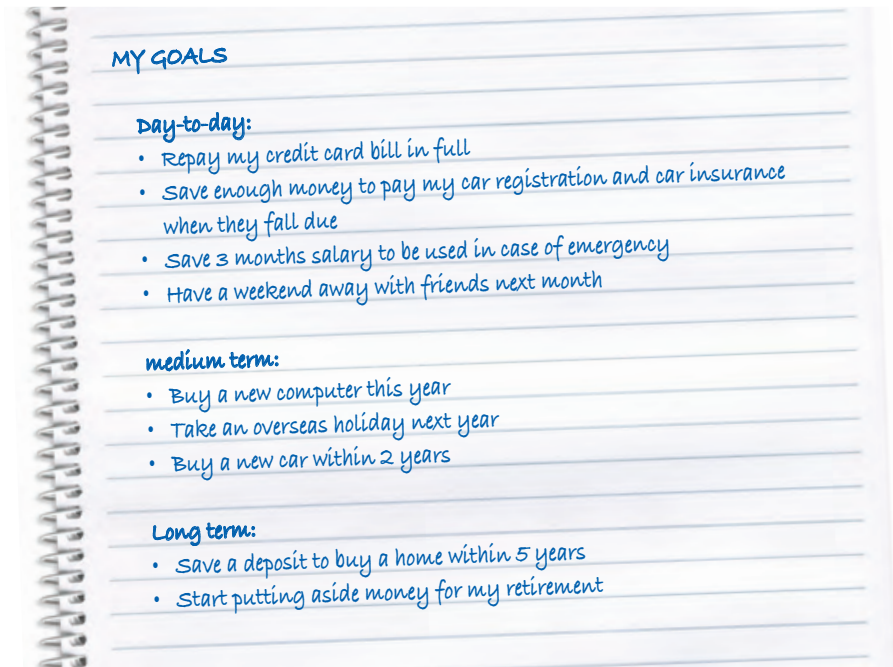 MY GOALS
Day-to-day:
• Repay my credit card bill in full
• Save enough money to pay my car registration and car insurance
when they fall due
• Save 3 months salary to be used in case of emergency
• Have a weekend away with friends next month
medium term:
• Buy a new computer this year
• Take an overseas holiday next year
• Buy a new car within 2 years
Long term:
• Save a deposit to buy a home within 5 years
• Start putting aside money for my retirement